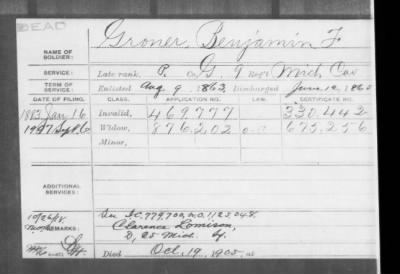 DEAD
Groner, Benjamin F.
NAME OF SOLDIER:
SERVICE: Late rank, P. Co. G, 9 Reg't Mich Cav
TERM OF SERVICE: Enlisted Aug. 9, 1863, Discharged June 12, 1865
DATE OF FILING. CLASS. APPLICATION NO. LAW. CERTIFICATE NO.
1883 Jan 16 Invalid, 469.777 330.442
1907 Sept 6 Widow, 876,202 675,256
Minor,
ADDITIONAL SERVICES:
10/26/18 See I.C. 779,700, W.O. 1125048.
REMARKS: Clarence Lomison,
D, 25 Mich. Inf.
Died Oct. 19, 1905, at